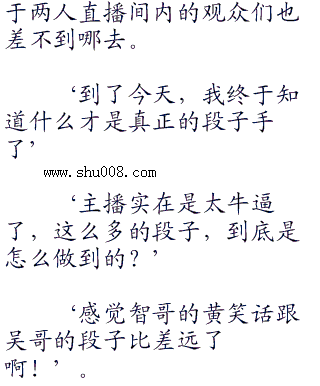 于两人直播间内的观众们也
差不到哪去。
‘到了今天，我终于知
道什么才是真正的段子手
了’
www.shu008.com
‘主播实在是太牛逼
了，这么多的段子，到底是
怎么做到的？’
‘感觉智哥的黄笑话跟
吴哥的段子比差远了
啊！’。